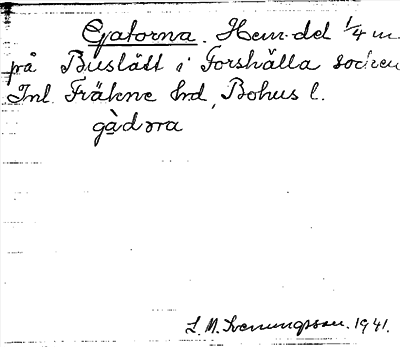 Gatorna. Hem.del 1/4 m.
på Buslätt i Forshälla socken
Inl. Fräkne hd, Bohus l.
gàdɔra
J. M. Svenungsson. 1941.